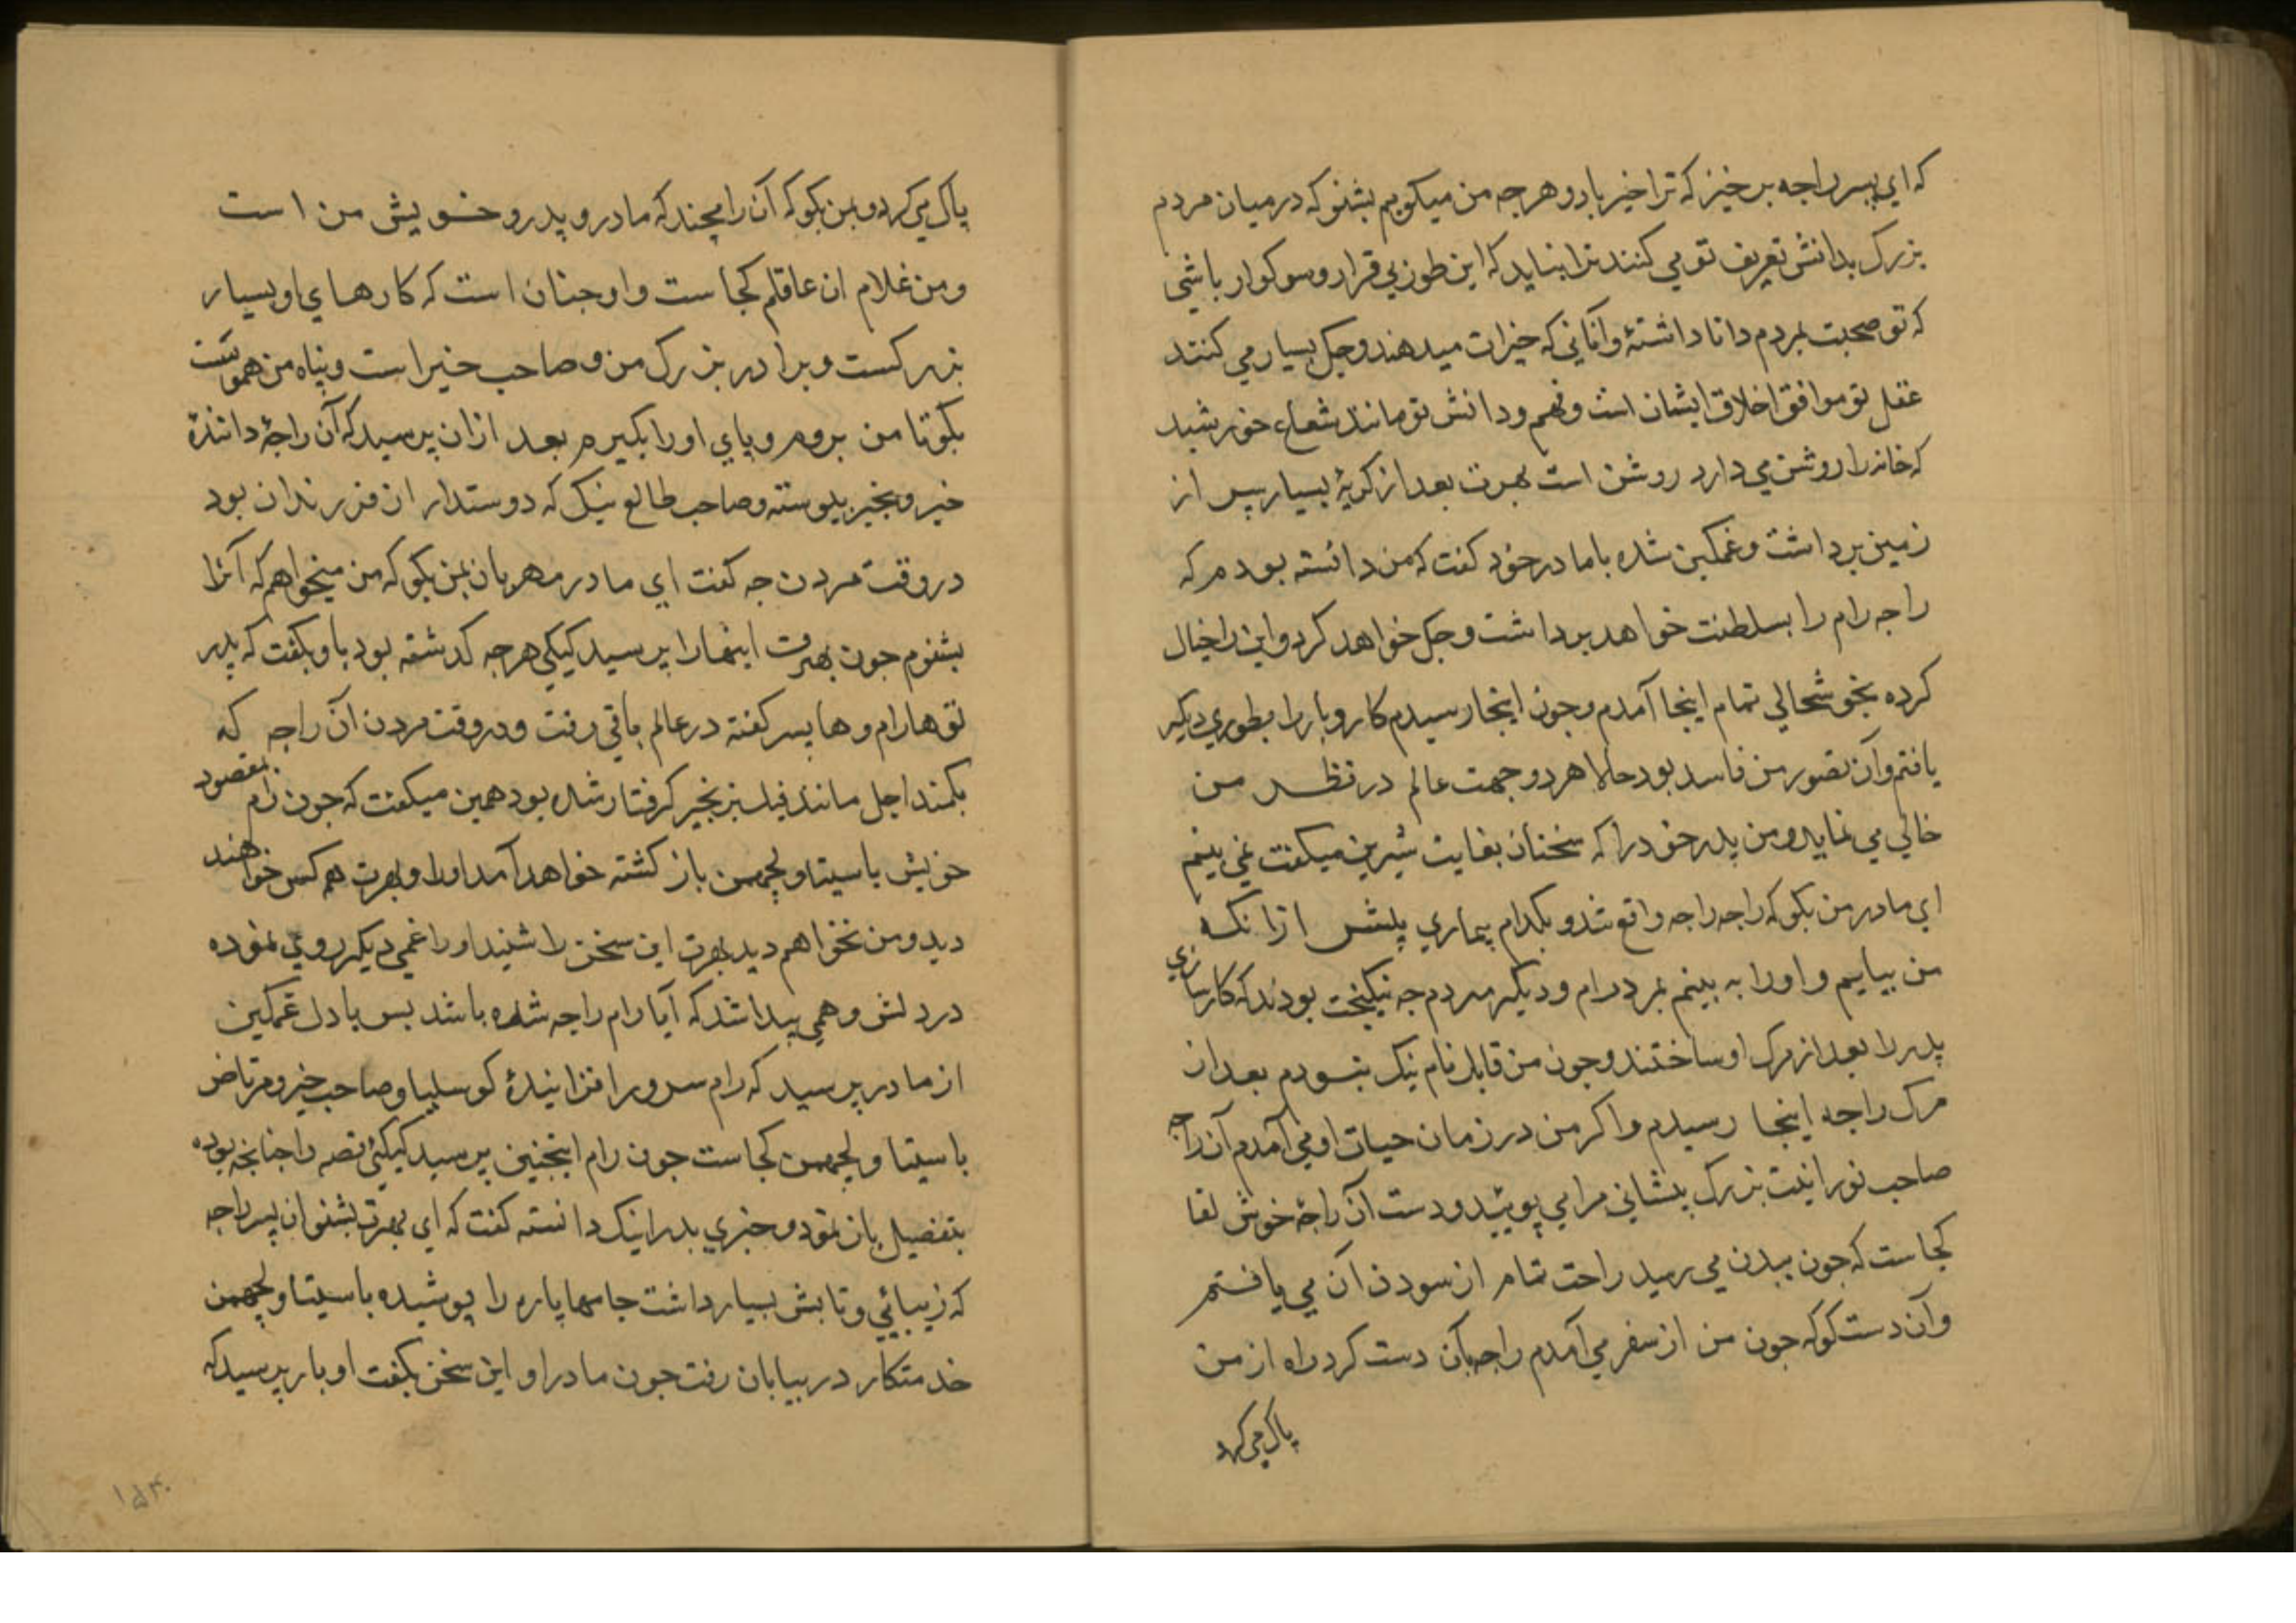 که ای پسر راجه برخیز که ترا خیر باد و هرجه من میکویم بشنو که درمیان مردم
بزرک بدانش تعریف تو می کنند ترا نباید که این طور بی قرار و سوکوار باشی
که تو صحبت بمردم دانا داشتۀ و آنانی که خیرات میدهند و جک بسیار می کنند
عقل تو موافق اخلاق ایشان است و فهم و دانش تو مانند شعاع خورشید
که خانه را روشن می دارد روشن است بهرت بعد از کریۀ بسیار سر از
زمین برداشت و غمکین شده با مادر خود کفت که من دانسته بودم که
راجه رام را بسلطنت خواهد برداشت و جک خواهد کرد و این را خیال
کرده بخوشحالی تمام اینجا آمدم و جون اینجا رسیدم کار و بار را بطوری دیکر
یافتم و آن تصور من فاسد بود حالا هر دو جهت عالم در نظر من
خالی می نماید و من پدر خود را که سخنان بغایت شیرین میکفت نمی بینم
ای مادر من بکو که راجه را جه واقع شد و بکدام بیماری پیش ازانکه
من بیایم و اورا به بینم بمرد رام و دیکر مردم جه نیکبخت بودند که کارسازی
پدر را بعد از مرک او ساختند و جون من قابل نام نیک نبودم بعد از
مرک راجه اینجا رسیدم و اکر من در زمان حیات او می آمدم آن راجه
صاحب نورانیت بزرک پیشانی مرا می بویید و دست آن راجۀ خوش لقا
کجاست که جون ببدن می رسید راحت تمام از سودن آن می یافتم
و آن دست کو که جون من از سفر می آمدم راجه بآن دست کرد راه از من
پاک می کرد
پاک می کرد و بمن بکو که آن رامچند که مادر و پدر و خویش من است
و من غلام آن عاقلم کجاست و او جنان است که کارهای او بسیار
بزرکست و برادر بزرک من و صاحب خیر است و پناه من هموست
بکو تا من بروم و پای او را بکیرم بعد ازان پرسید که آن راجۀ دانندۀ
خیر و بخیر پیوسته و صاحب طالع نیک که دوستدار آن فرزندان بود
در وقت مردن جه کفت ای مادر مهربان بمن بکو که من میخواهم که آنرا
بشنوم جون بهرت اینها را پرسید کیکی هرجه کدشته بود با او بکفت که پدر
تو ها رام و ها پسر کفته در عالم باقی رفت و در وقت مردن آن راجه که
بکمند اجل مانند فیل بزنجیر کرفتار شده بود همین میکفت که جون رام بمقصود
خویش با سیتا و لچهمن باز کشته خواهد آمد اورا و بهرت همه کس خواهند
دید و من نخواهم دید بهرت این سخن را شنید اورا غمی دیکر روی نموده
در دلش وهمی پیدا شد که آیا رام راجه شده باشد پس با دل غمکین
از مادر پرسید که رام سرور افزایندۀ کوسلیا و صاحب خیر و مرتاض
با سیتا و لچهمن کجاست جون رام اینجنین پرسید کیکئی قصه را جنانجه بوده
بتفصیل بیان نمود و خبری بد را نیک دانسته کفت که ای بهرت بشنو آن پسر راجه
که زیبائی و تابش بسیار داشت جامها پاره را پوشیده با سیتا و لچهمن
خدمتکار در بیابان رفت جون مادر او این سخن بکفت او باز پرسید که
۱۵۳